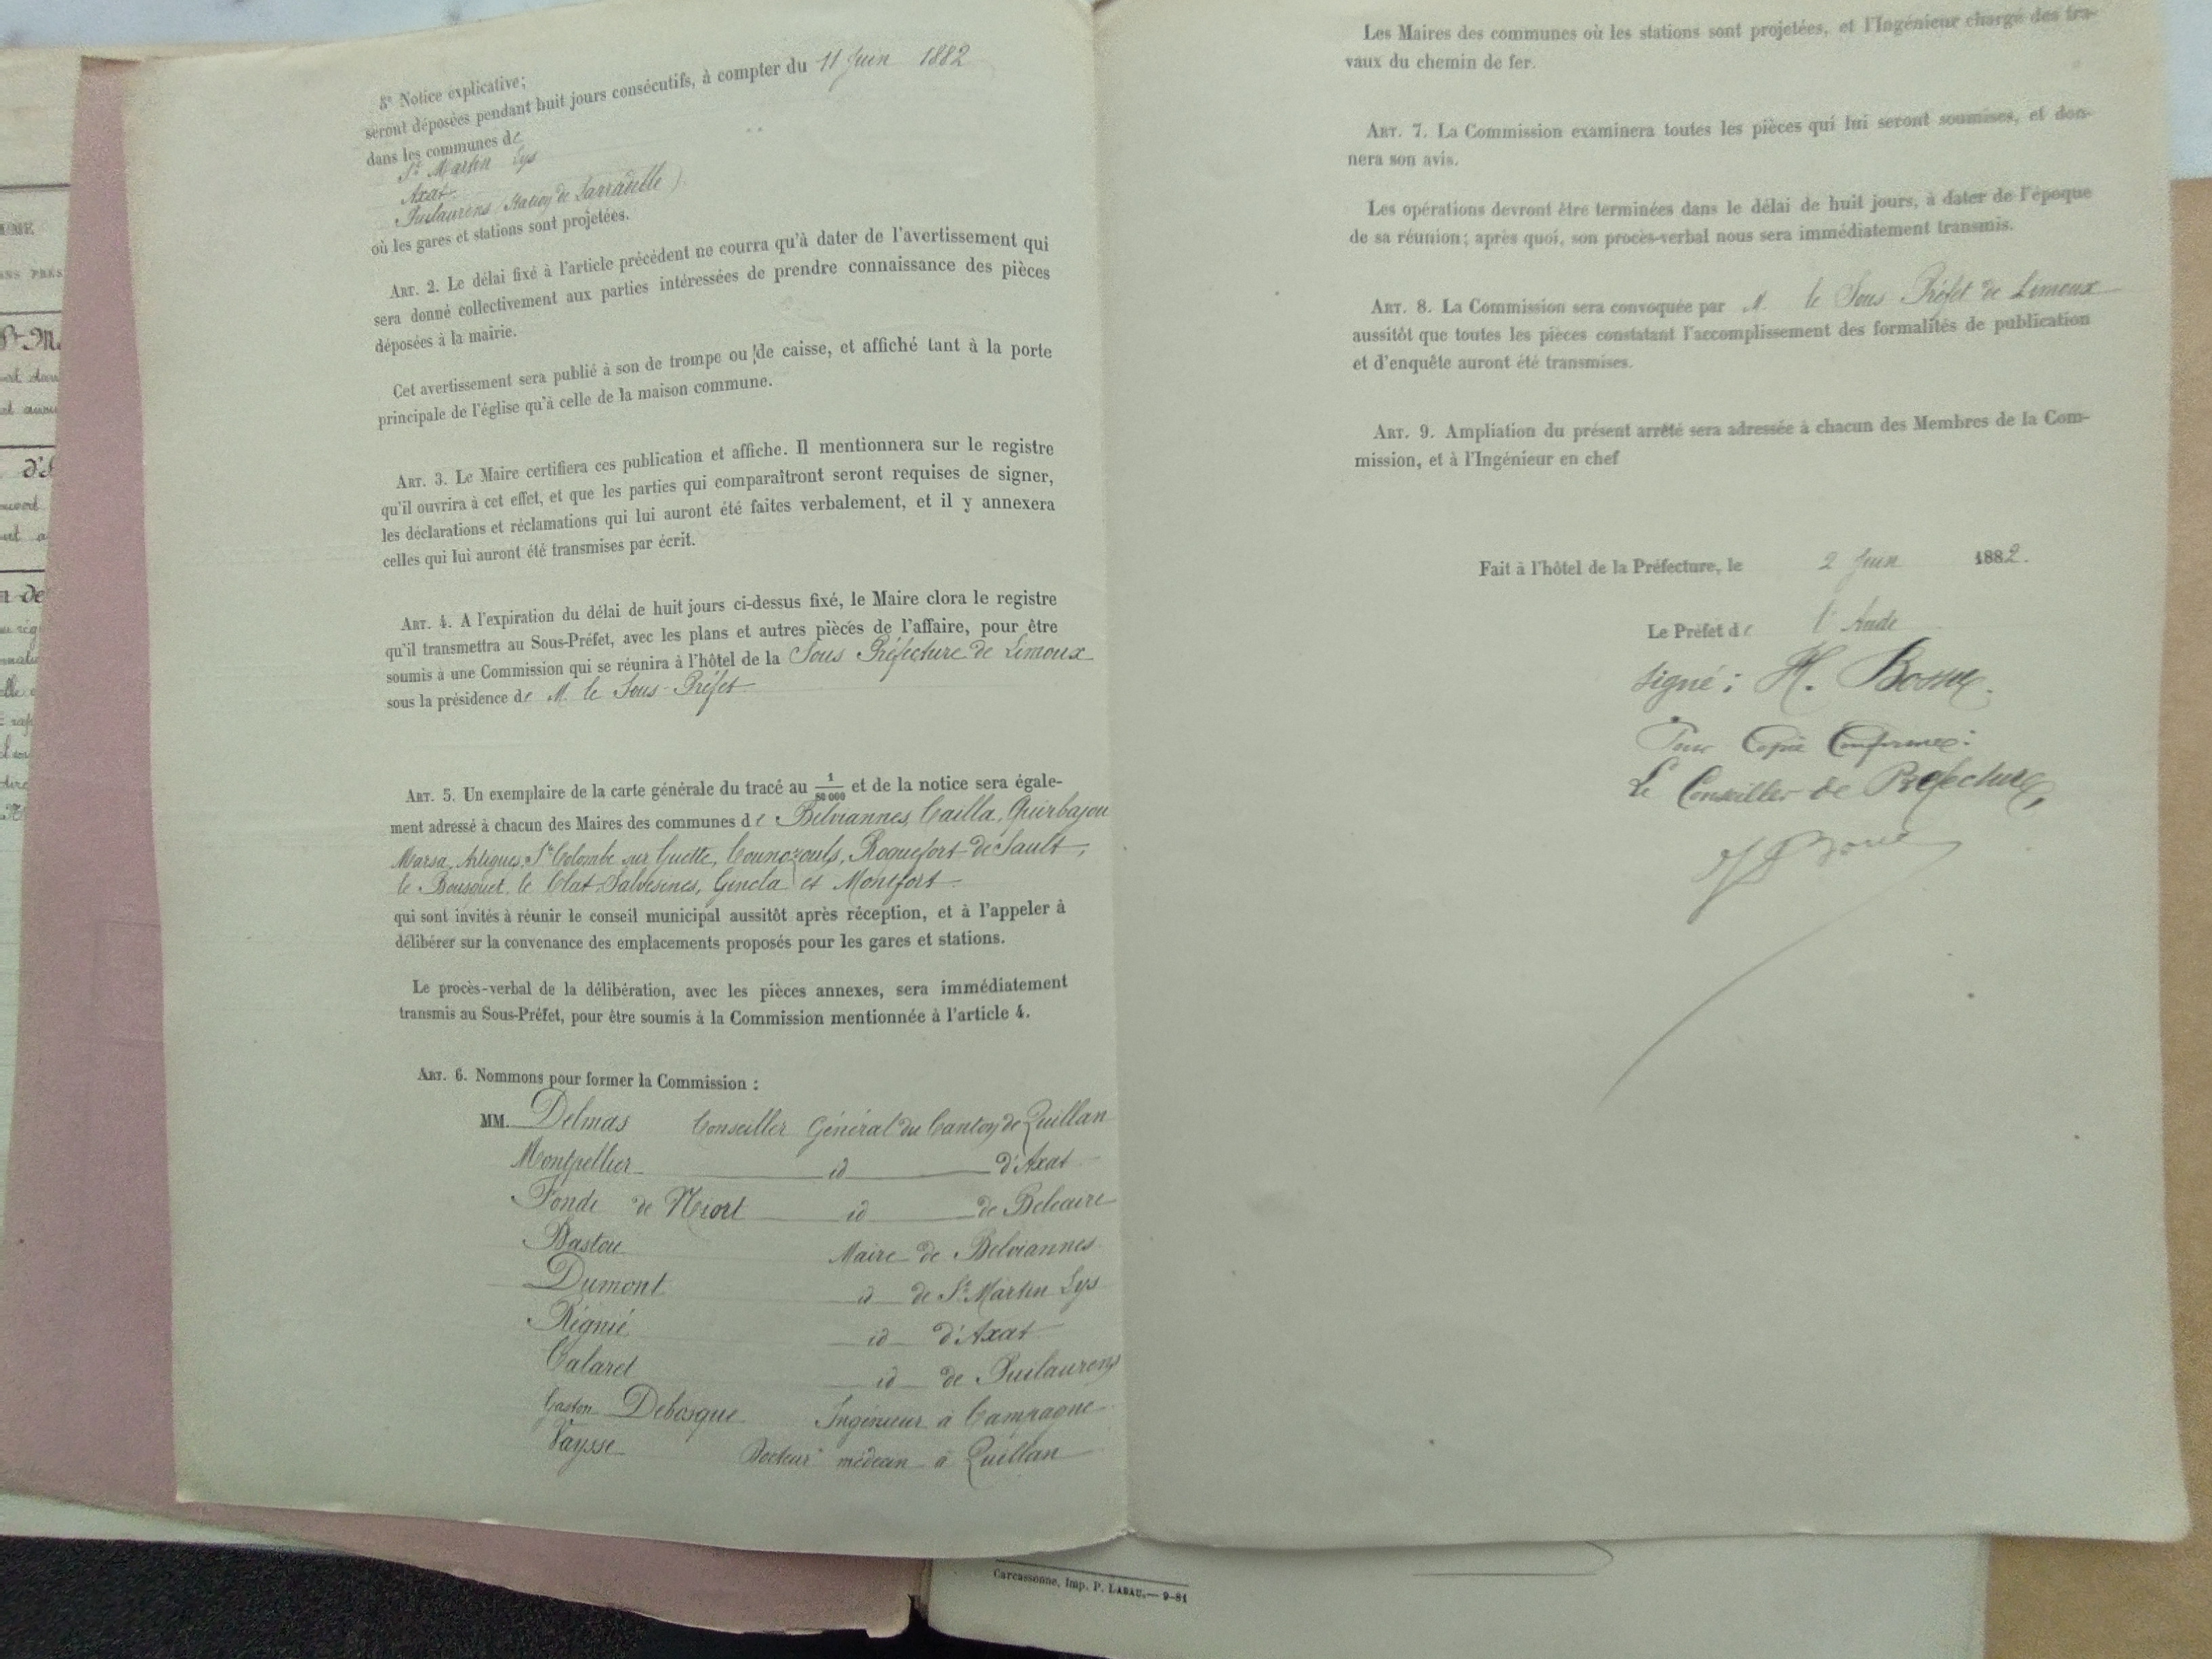 5° Notice explicative;
seront déposées pendant huit jours consécutifs, à compter du 11 Juin 1882
dans les communes de
St Martin Lys
Axat
Puilaurens (Station de Larradelle)
où les gares et stations sont projetées.
ART. 2. Le délai fixé à l'article précédent ne courra qu'à dater de l'avertissement qui
sera donné collectivement aux parties intéressées de prendre connaissance des pièces
déposées à la mairie.
Cet avertissement sera publié à son de trompe ou de caisse, et affiché tant à la porte
principale de l'église qu'à celle de la maison commune.
ART. 3. Le Maire certifiera ces publication et affiche. Il mentionnera sur le registre
qu'il ouvrira à cet effet, et que les parties qui comparaîtront seront requises de signer,
les déclarations et réclamations qui lui auront été faites verbalement, et il y annexera
celles qui lui auront été transmises par écrit.
ART. 4. A l'expiration du délai de huit jours ci-dessus fixé, le Maire clora le registre
qu'il transmettra au Sous-Préfet, avec les plans et autres pièces de l'affaire, pour être
soumis à une Commission qui se réunira à l'hôtel de la Sous Préfecture de Limoux
sous la présidence de M. le Sous-Préfet
ART. 5. Un exemplaire de la carte générale du tracé au 1/80 000 et de la notice sera égale-
ment adressé à chacun des Maires des communes de Belviannes, Cailla, Quirbajou
Marsa, Artigues, Ste Colombe sur Guette, Counozouls, Roquefort de Sault,
le Bousquet, le Clat, Salvesines, Gincla et Montfort
qui sont invités à réunir le conseil municipal aussitôt après réception, et à l'appeler à
délibérer sur la convenance des emplacements proposés pour les gares et stations.
Le procès-verbal de la délibération, avec les pièces annexes, sera immédiatement
transmis au Sous-Préfet, pour être soumis à la Commission mentionnée à l'article 4.
ART. 6. Nommons pour former la Commission :
MM. Delmas Conseiller Général du Canton de Quillan
Montpellier id d'Axat
Fondi de Niort id de Belcaire
Bastou Maire de Belviannes
Dumont id de St Martin Lys
Régnié id d'Axat
Calaret id de Puilaurens
Gaston Debosque Ingénieur à Campagne
Vaysse Docteur médecin à Quillan
Les Maires des communes où les stations sont projetées, et l'Ingénieur chargé des tra-
vaux du chemin de fer.
ART. 7. La Commission examinera toutes les pièces qui lui seront soumises, et don-
nera son avis.
Les opérations devront être terminées dans le délai de huit jours, à dater de l'époque
de sa réunion; après quoi, son procès-verbal nous sera immédiatement transmis.
ART. 8. La Commission sera convoquée par M. le Sous Préfet de Limoux
aussitôt que toutes les pièces constatant l'accomplissement des formalités de publication
et d'enquête auront été transmises.
ART. 9. Ampliation du présent arrêté sera adressée à chacun des Membres de la Com-
mission, et à l'Ingénieur en chef
Fait à l'hôtel de la Préfecture, le 2 Juin 1882.
Le Préfet de l'Aude
Signé : H.
Pour Copie Conforme :
Le Conseiller de Préfecture,
Carcassonne, Imp. P. LABAU.— 9-81